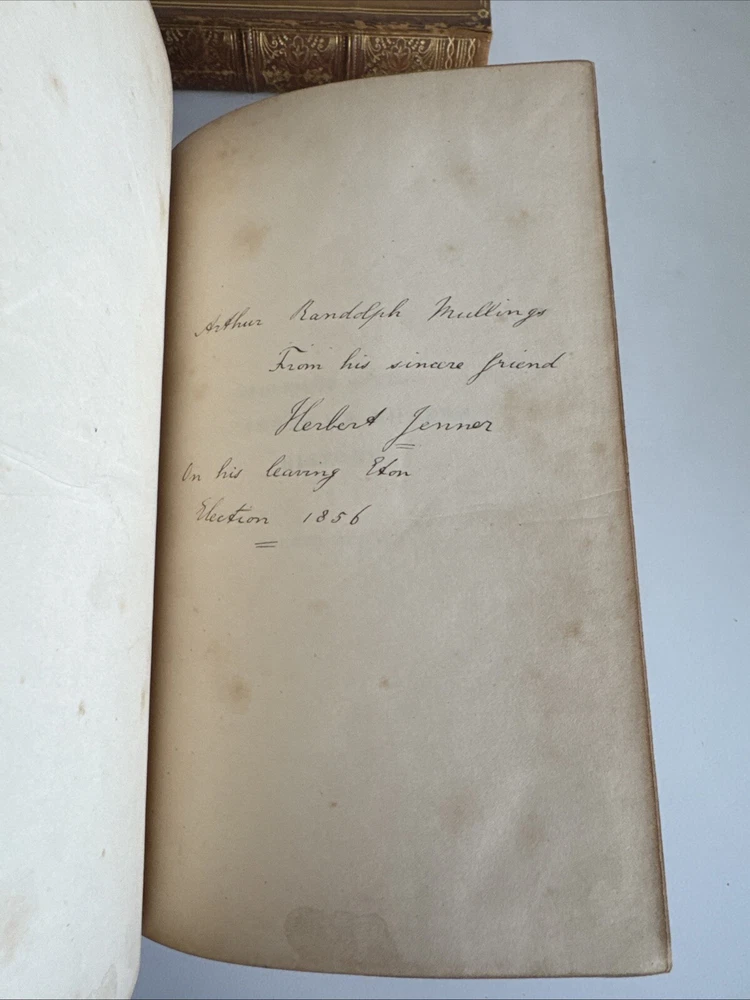 Arthur Randolph Mullings
From his sincere friend
Herbert Jenner
On his leaving Eton
Election 1856